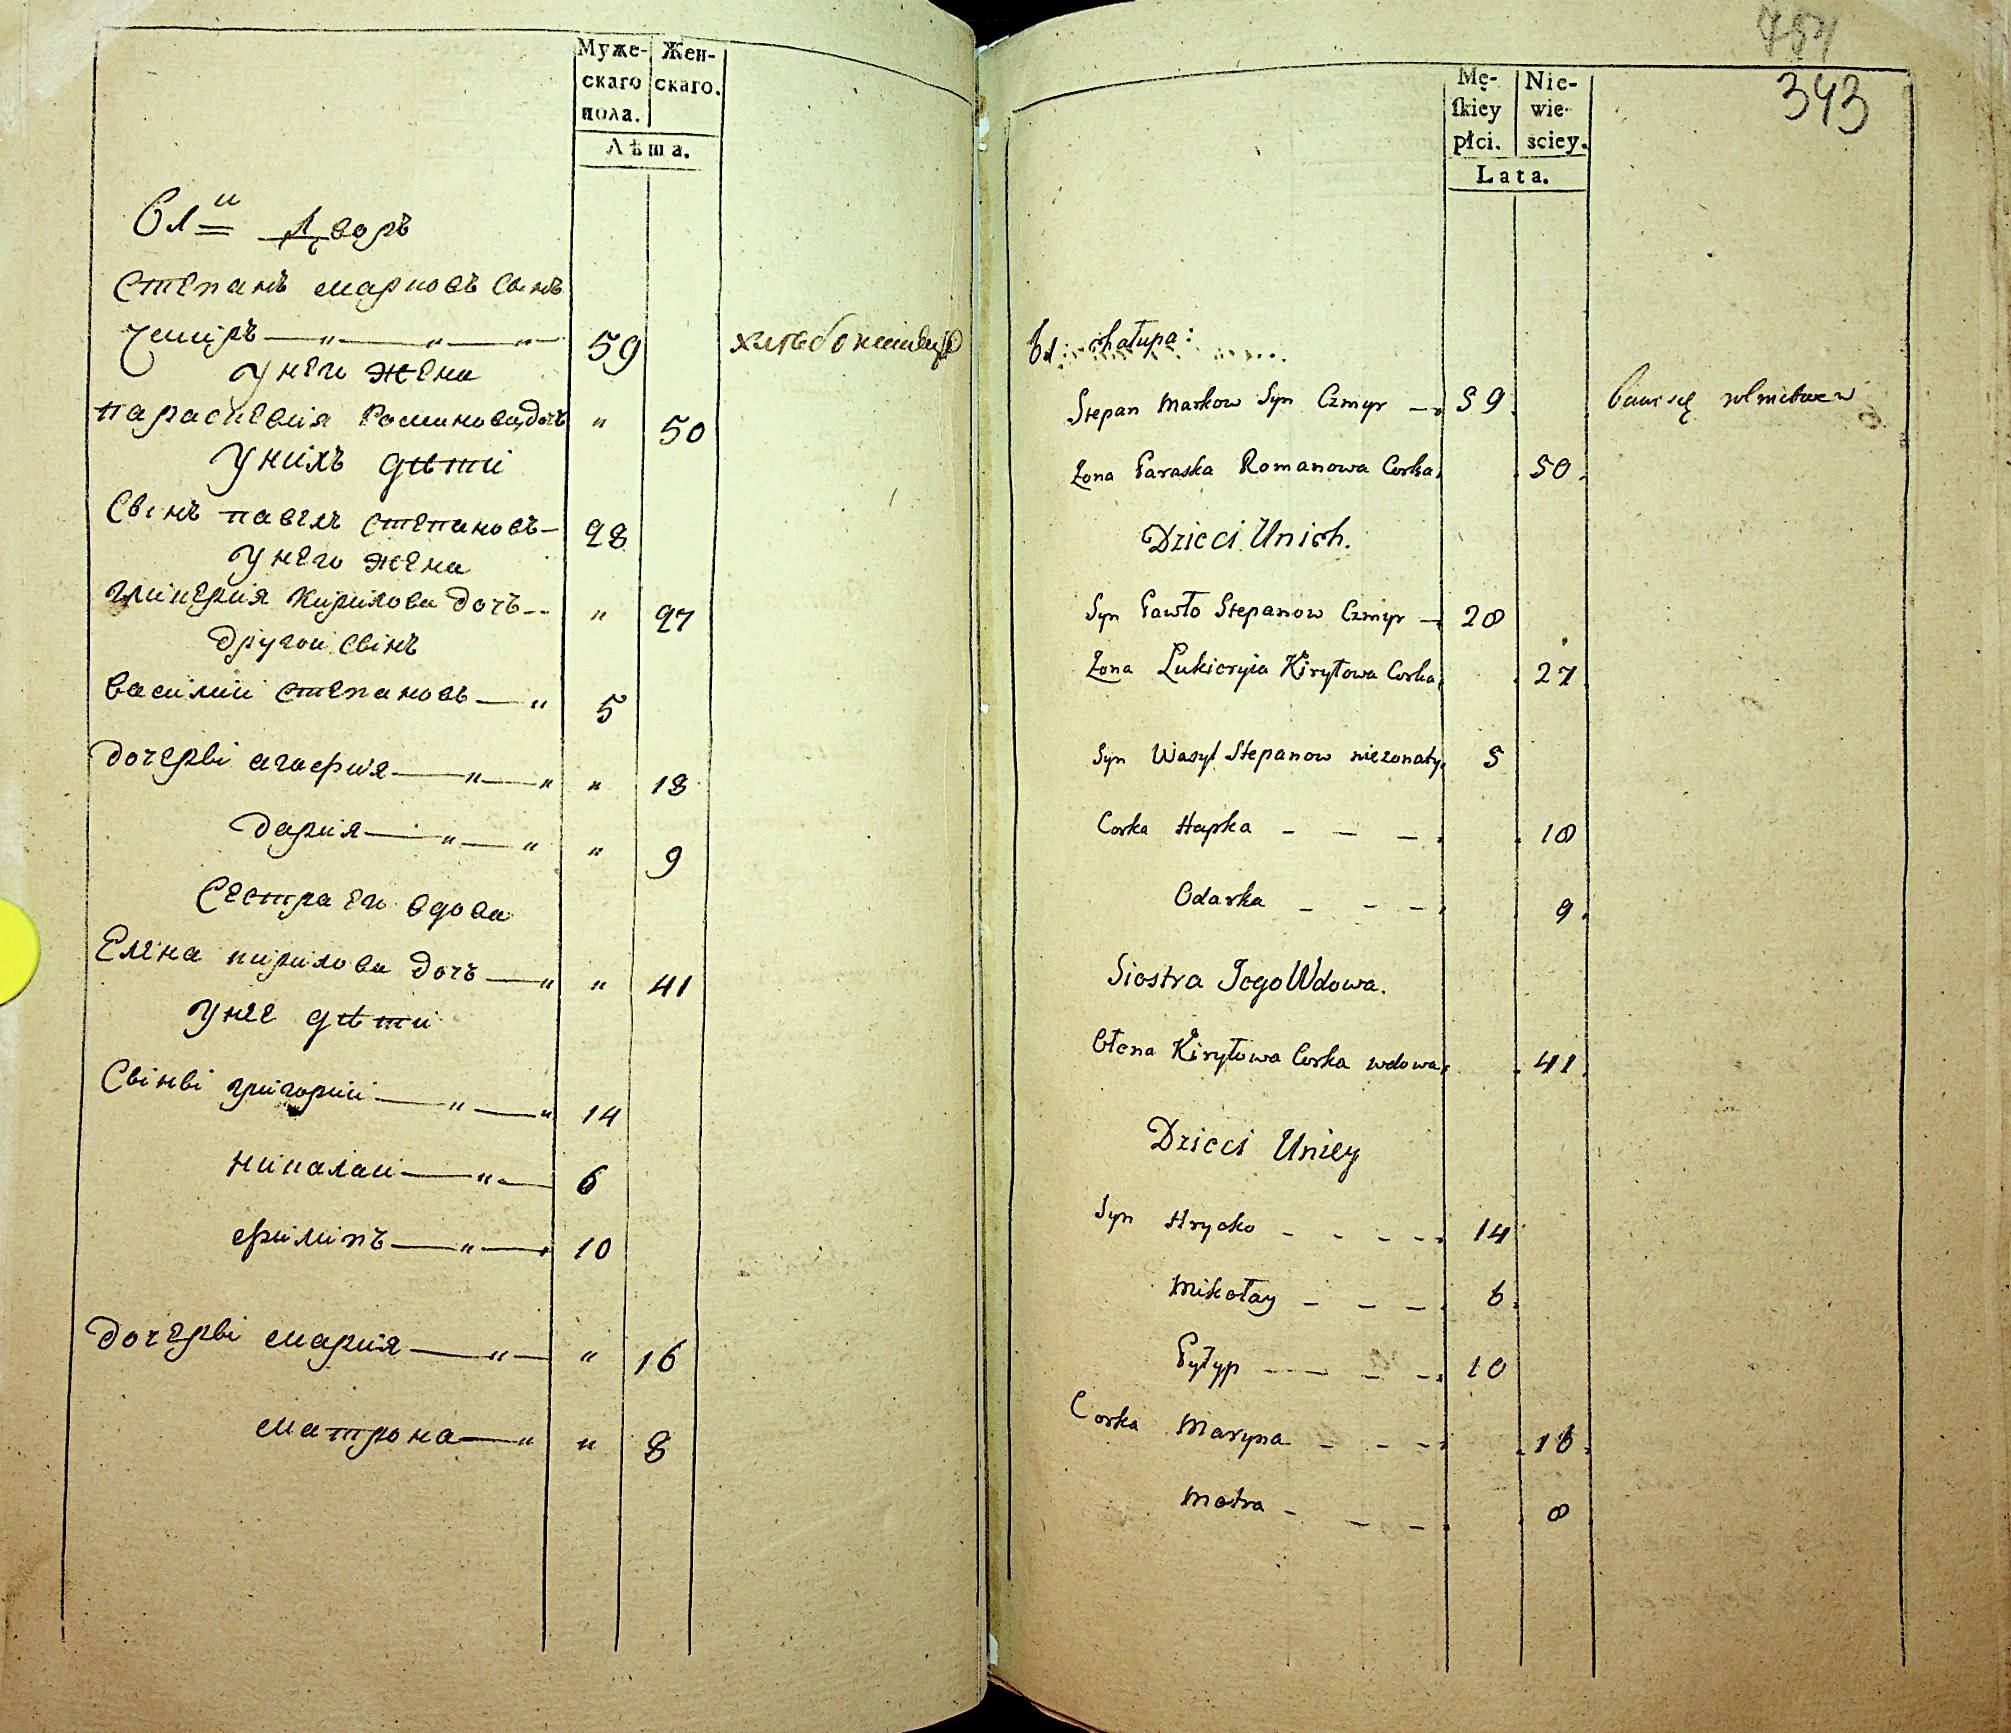 Муже-
скаго
пола.
Жен-
скаго.
Лѣта.
61й Дворъ
Степанъ марковъ Свінъ
Чміръ — " — " — " — 59 хлѣбопашецъ
У него жена
параскевія Романова дочъ " 50
У нихъ дѣти
Свінъ павелъ степановъ — 28
У него жена
гликерія Кирилова дочъ -- " 27
Другои свінъ
василий степановъ — " 5
дочерві агафия — " — " " 18
дария — " — " " 9
Сестра его вдова
Елена кирилова дочъ — " " 41
У нее дѣти
Свінві григорий — " — " 14
николай — " — 6
филипъ — " — 10
дочерві мария — " — " 16
матрона — " " 8
757
343
Mę-
ſkiey
płci.
Nie-
wie-
ściey.
Lata.
61: chałupa:
Stepan Markow Syn Czmyr — 59 bawi się rolnictwem
Żona Paraska Romanowa Corka 50
Dzieci Unich.
Syn Pawło Stepanow Czmyr — 28
Żona Łukieryia Kiryłowa Corka 27
Syn Wasyl Stepanow nieżonaty 5
Corka Hapka - - - 18
Odarka - - - 9
Siostra Jego Wdowa.
Ołena Kiryłowa Corka wdowa 41
Dzieci Uniey
Syn Hrycko - - - - 14
Mikołay - - - 6
Pyłyp - - - 10
Corka Maryna - - - 16
Motra - - - 8